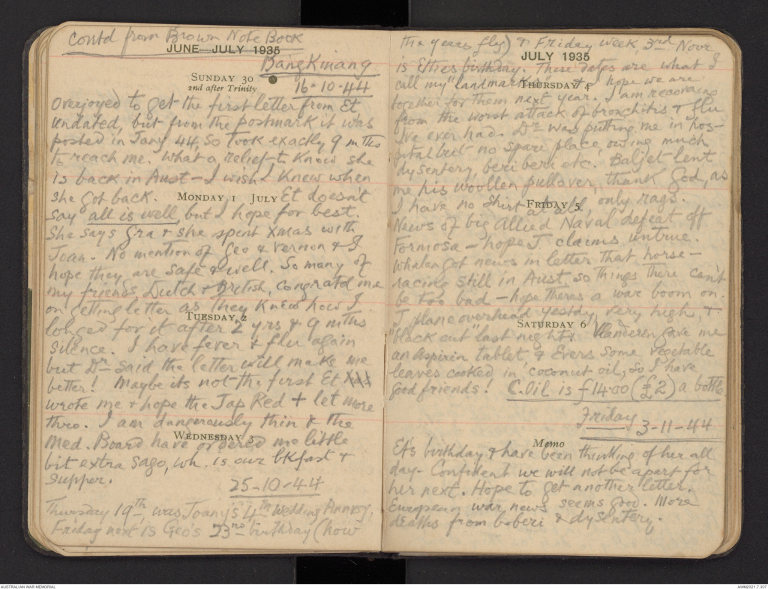 Contd from Brown Note Book
JUNE—JULY 1935
Bangkinang
SUNDAY 30
2nd after Trinity
16-10-44
Overjoyed to get the first letter from Et
undated, but from the postmark it was
posted in Jany 44, so took exactly 9 mths
to reach me. What a relief to know she
is back in Aust – I wish I knew when
she got back. Et doesn't
MONDAY 1 JULY
say all is well but I hope for best.
She says Gra & she spent Xmas with
Joan. No mention of Geo & Vernon & I
hope they are safe & well. So many of
my friends, Dutch & British, congratd me
on getting letter as they knew how I
TUESDAY 2
longed for it after 2 yrs & 9 mths
silence. I have fever & flu again
but Dr said the letter will make me
better! Maybe its not the first Et
wrote me & hope the Jap Red + let more
thro. I am dangerously thin & the
Med. Board have ordered me little
WEDNESDAY 3
bit extra sago, wh. is our bkfast &
supper.
25-10-44
Thursday 19th was Joany's 4th Wedding Annvsy,
Friday next is Geo's 23rd birthday (how
JULY 1935
the years fly) & Friday week, 3rd Novr
is Etties birthday. These dates are what I
call my "landmarks" & I hope we are
THURSDAY 4
together for them next year. I am recovering
from the worst attack of bronchitis & flu
I've ever had. Dr was putting me in hos-
pital but no spare place, owing much
dysentery, beri beri etc. Baljet lent
me his woollen pullover, thank God, as
I have no shirt at all, only rags.
FRIDAY 5
News of big Allied Naval defeat off
Formosa – hope J claims untrue.
Whalen got news in letter that horse-
racing still in Aust so things there can't
be too bad – hope theres a war boom on.
J plane overhead yestdy very high, &
"black out" last night. Manderson gave me
SATURDAY 6
an aspirin tablet & Evers some vegetable
leaves cooked in coconut oil, so I have
good friends! C. Oil is f14.00 (£2) a bottle
Friday
3-11-44
Memo
Et's birthday & have been thinking of her all
day. Confident we will not be apart for
her next. Hope to get another letter.
European war news seems good. More
deaths from b-beri & dysentery.
AUSTRALIAN WAR MEMORIAL